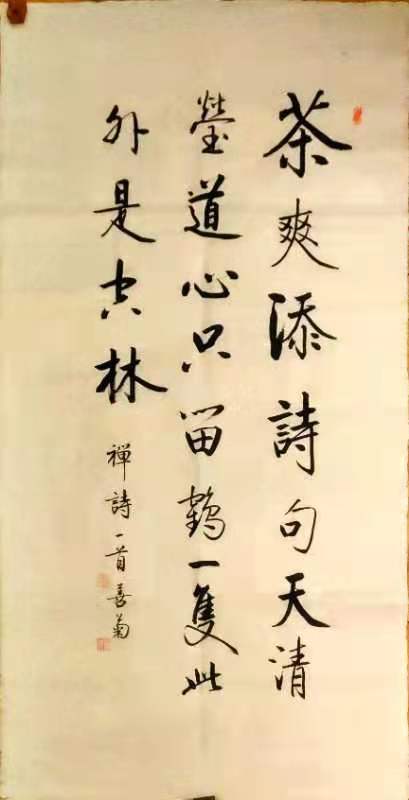 茶爽添詩句天清
瑩道心只留鶴一隻此
外是空林
禪詩一首 善菊